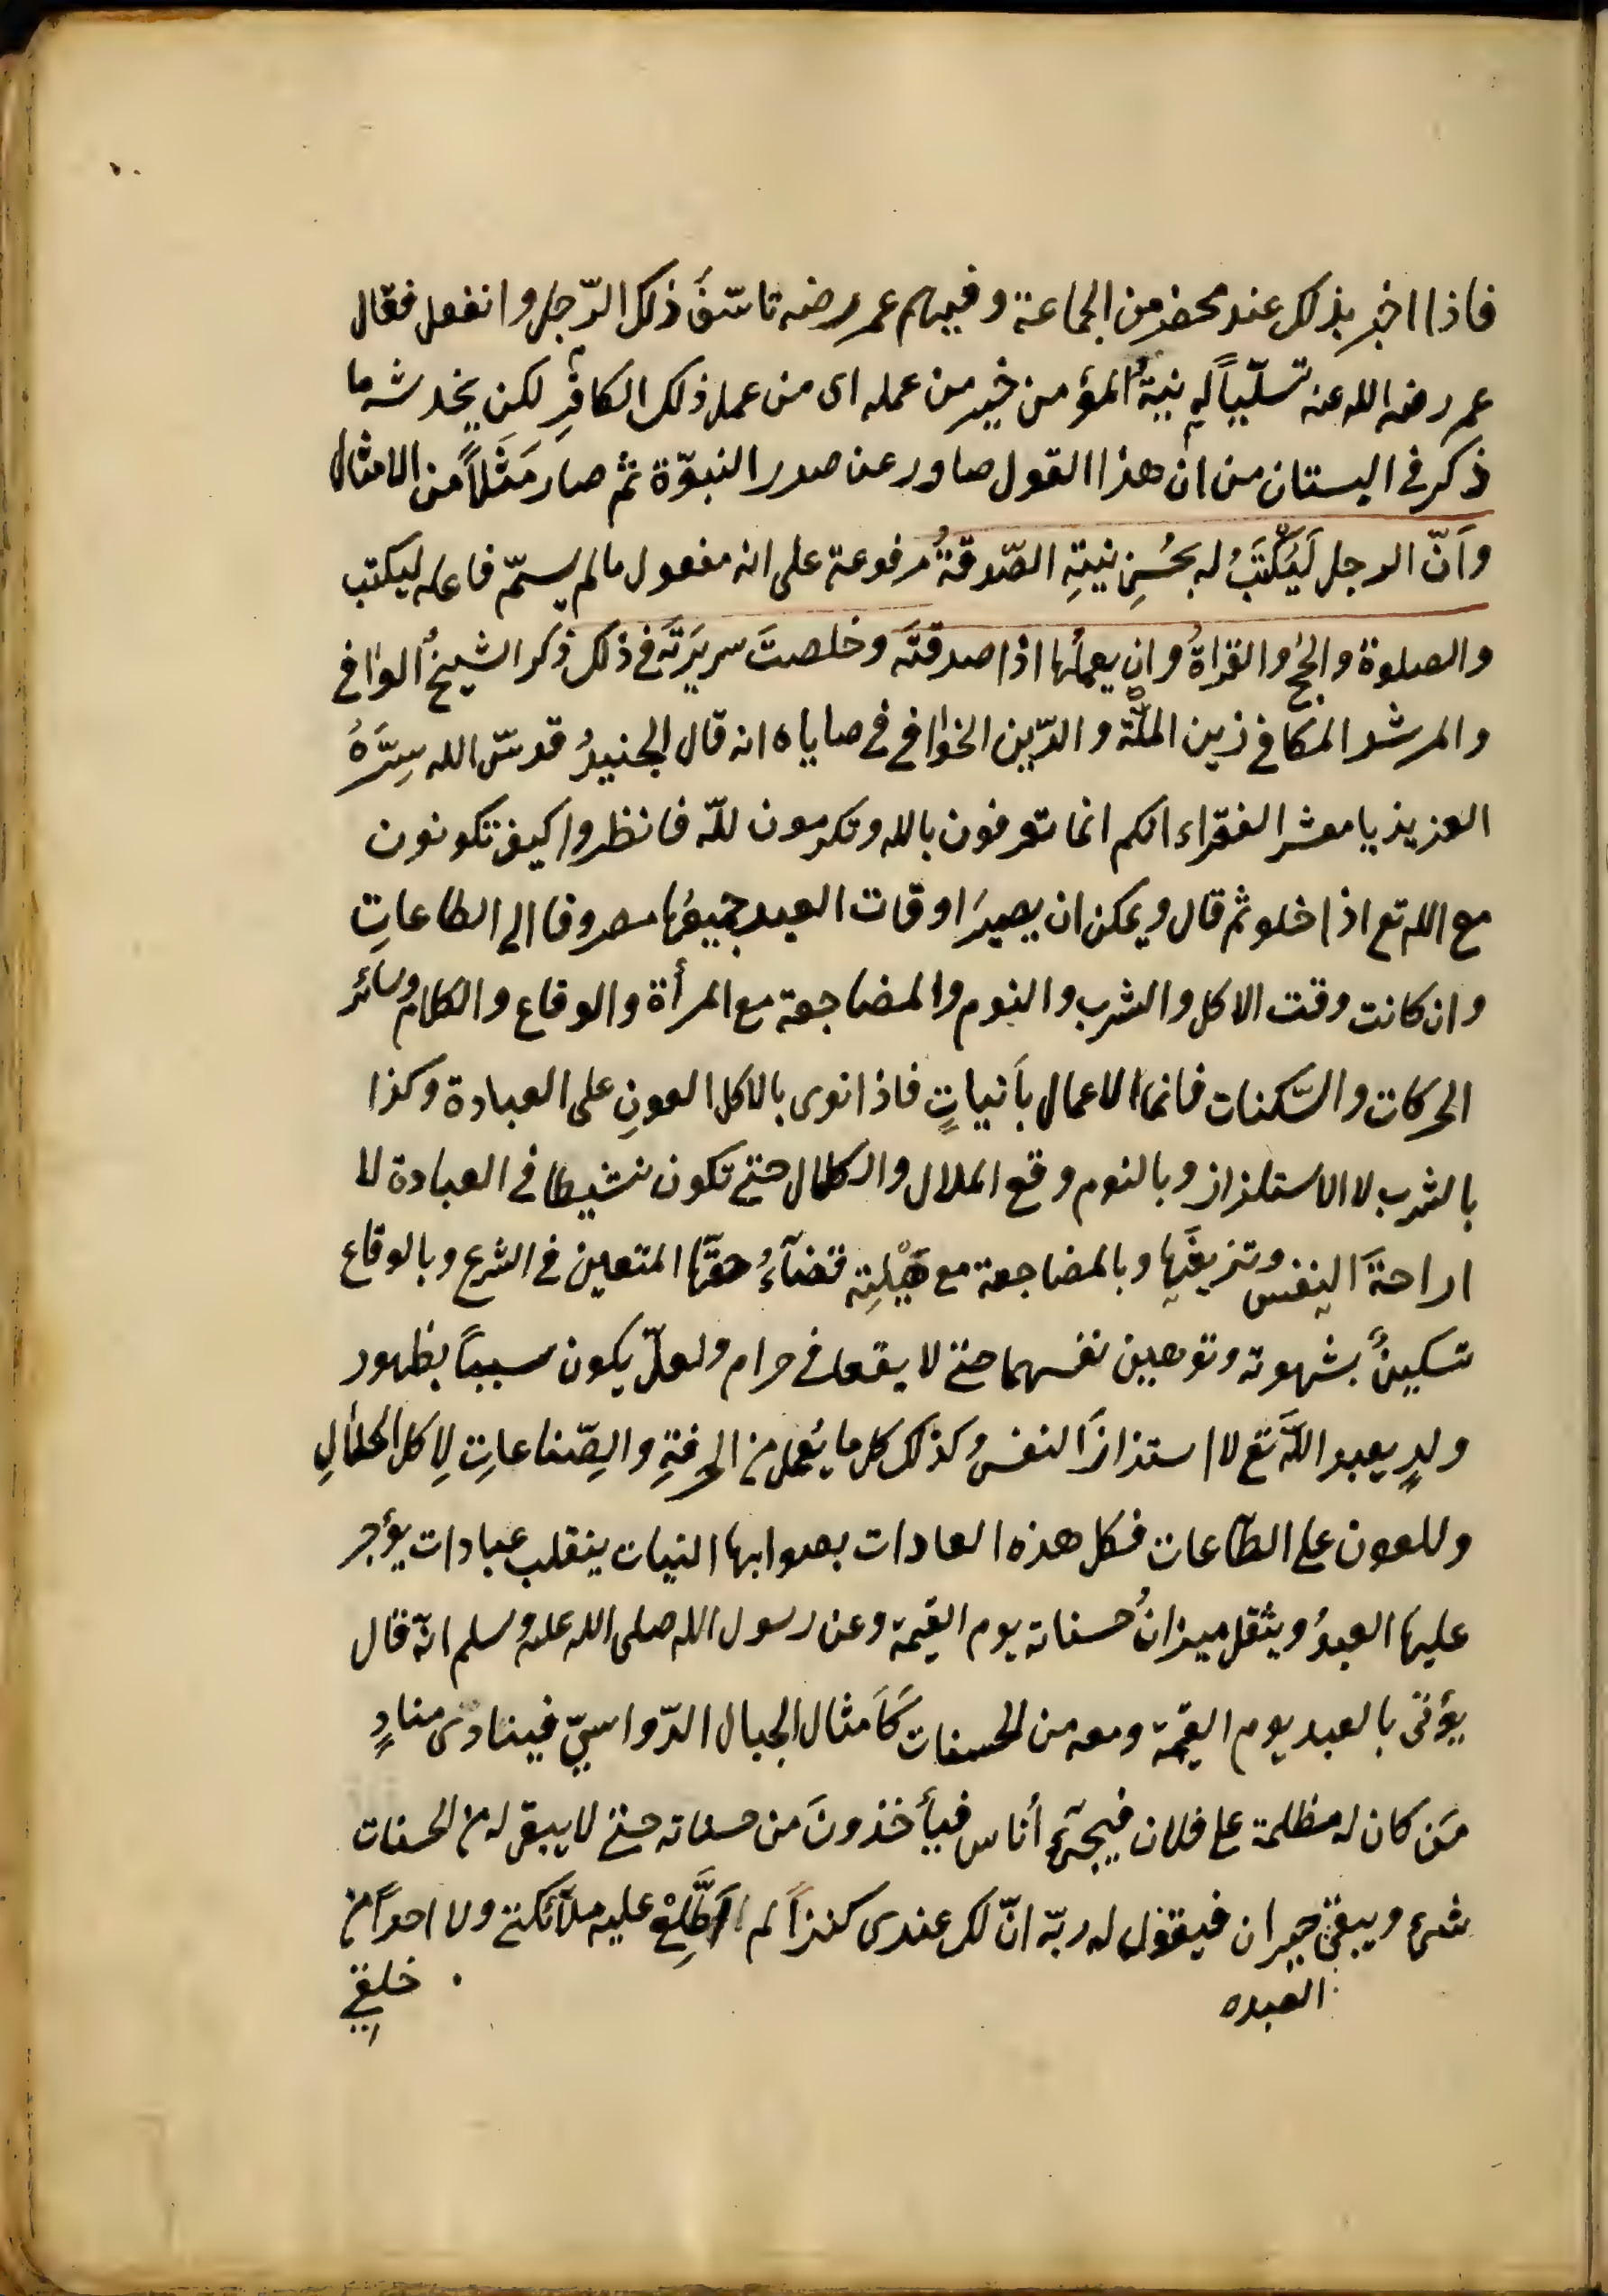 فاذا اخبر بذلك عند محضر من الجماعة وفيهم عمر رضه تاسّفَ ذلك الرّجل وانفعل فقال
عمر رضى الله عنه تسلّياً له نيّةُ المؤمن خير من عمله اى من عمل ذلك الكافرِ لكن يخدشه ما
ذكر فى البستان من ان هذا القول صادر عن صدر النبوّة ثم صار مَثَلاً من الامثال
واَنّ الرجل لَيُكْتَبُ له بحُسْنِ نيتِهِ الصّدقةُ مرفوعة على انه مفعول مالم يسمّ فاعله ليكتب
والصلوة والحجُ والقراةُ وان يعملُها اذا صدقتَه وخلصتَ سريرَتَه فى ذلك ذكر الشيخُ الوافى
والمرشد المكافى زين الملّة والدّين الخوافى فى صاياه انه قال الجنيدُ قدسّ الله سِرَّهُ
العزيز يا معشر الفقراء انكم انما تعرفون بالله وتكرمون للّه فانظروا كيف تكونون
مع الله تع اذا خلو ثم قال ويمكن ان يصيرَ اوقات العبد جميعُها مصروفا الى الطاعاتِ
وان كانت وقت الاكل والشرب والنوم والمضاجعة مع المرأة والوقاع والكلام وسائر
الحركات والسّكنات فانما الاعمال بأنياتٍ فاذا نوى بالاكل العونِ على العبادة وكذا
بالشرب لا الاستلزاز وبالنوم وقع الملال والكلال حتى تكون نشيطا فى العبادة لا
اراحةَ النفس وتنريفَها وبالمضاجعة مع حَيْلِتِه قضآءُ حقّها المتعين فى الشرع وبالوقاع
تسكينً بشهوته وتوصين نفسهما حتى لا يقعا فى حرام ولعلّ يكون سبباً بظهور
ولدٍ يعبد اللّه تع لا استذازَ النفس وكذلك كل ما يُعمل من الحرفةِ والصّناعاتِ لِاكل الحلالِ
وللعون على الطّاعات فكل هذه العادات بصوابها النيات ينقلب عبادات يؤجر
عليها العبدُ ويثقل ميزانُ حسناته يوم القيمة وعن رسول الله صلى الله عله وسلم انّه قال
يؤتى بالعبد يوم القيمة ومعه من الحسنات كَاَمثال الجبال الرّواسىّ فينادى منادٍ
مَن كان له مظلمة على فلان فيجئ أناس فيأخذونَ من حسناته حتى لا يبقى له من الحسنات
شئ ويبقى حيران فيقول له ربّه انّ لك عندى كنزاً لم اَطَّلِعْ عليه ملآئكتى ولا احداً من
العبده
خلقى